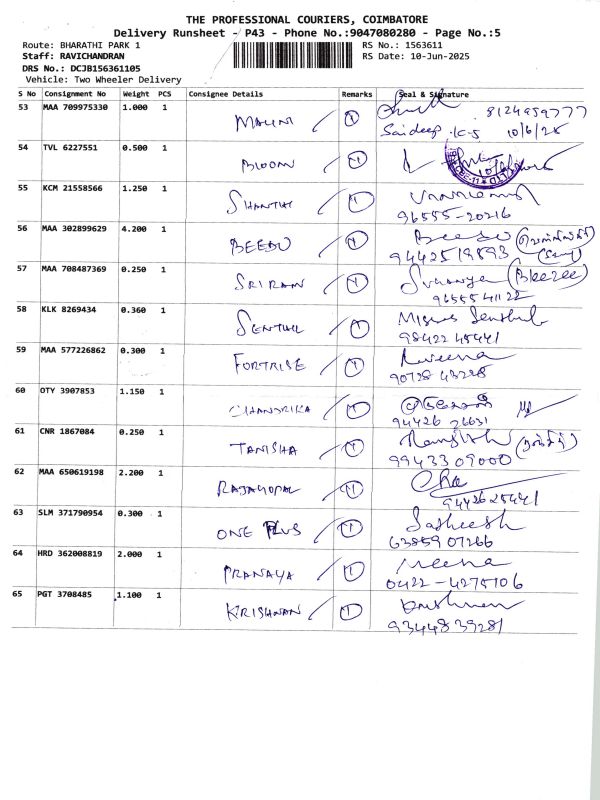 THE PROFESSIONAL COURIERS, COIMBATORE
Delivery Runsheet - P43 - Phone No.:9047080280 - Page No.:5
Route: BHARATHI PARK 1 RS No.: 1563611
Staff: RAVICHANDRAN RS Date: 10-Jun-2025
DRS No.: DCJB156361105
Vehicle: Two Wheeler Delivery
S No Consignment No Weight PCS Consignee Details Remarks Seal & Signature
53 MAA 709975330 1.000 1 MALINI 1 8124959777
Saideep .K-5 10/6/25
54 TVL 6227551 0.500 1 BLOOM 1
55 KCM 21558566 1.250 1 SHANTHI 1
96555-20216
56 MAA 302899629 4.200 1 BEEDU 1
9442519893
57 MAA 708487369 0.250 1 SRIRAM 1
9655541122
58 KLK 8269434 0.360 1 SENTHIL 1 Senthil
98422 45441
59 MAA 577226862 0.300 1 FORTRISE 1 Raveena
90728 43228
60 OTY 3907853 1.150 1 CHANDRIKA 1
94426 26631
61 CNR 1867084 0.250 1 TANISHA 1
9943309000
62 MAA 650619198 2.200 1 RAJAGOPAL 1
9442625441
63 SLM 371790954 0.300 1 ONE PLUS 1 Satheesh
6385907266
64 HRD 362008819 2.000 1 PRANAYA 1 Meena
0422-4275106
65 PGT 3708485 1.100 1 KRISHNAN 1 Krishnan
9344839281